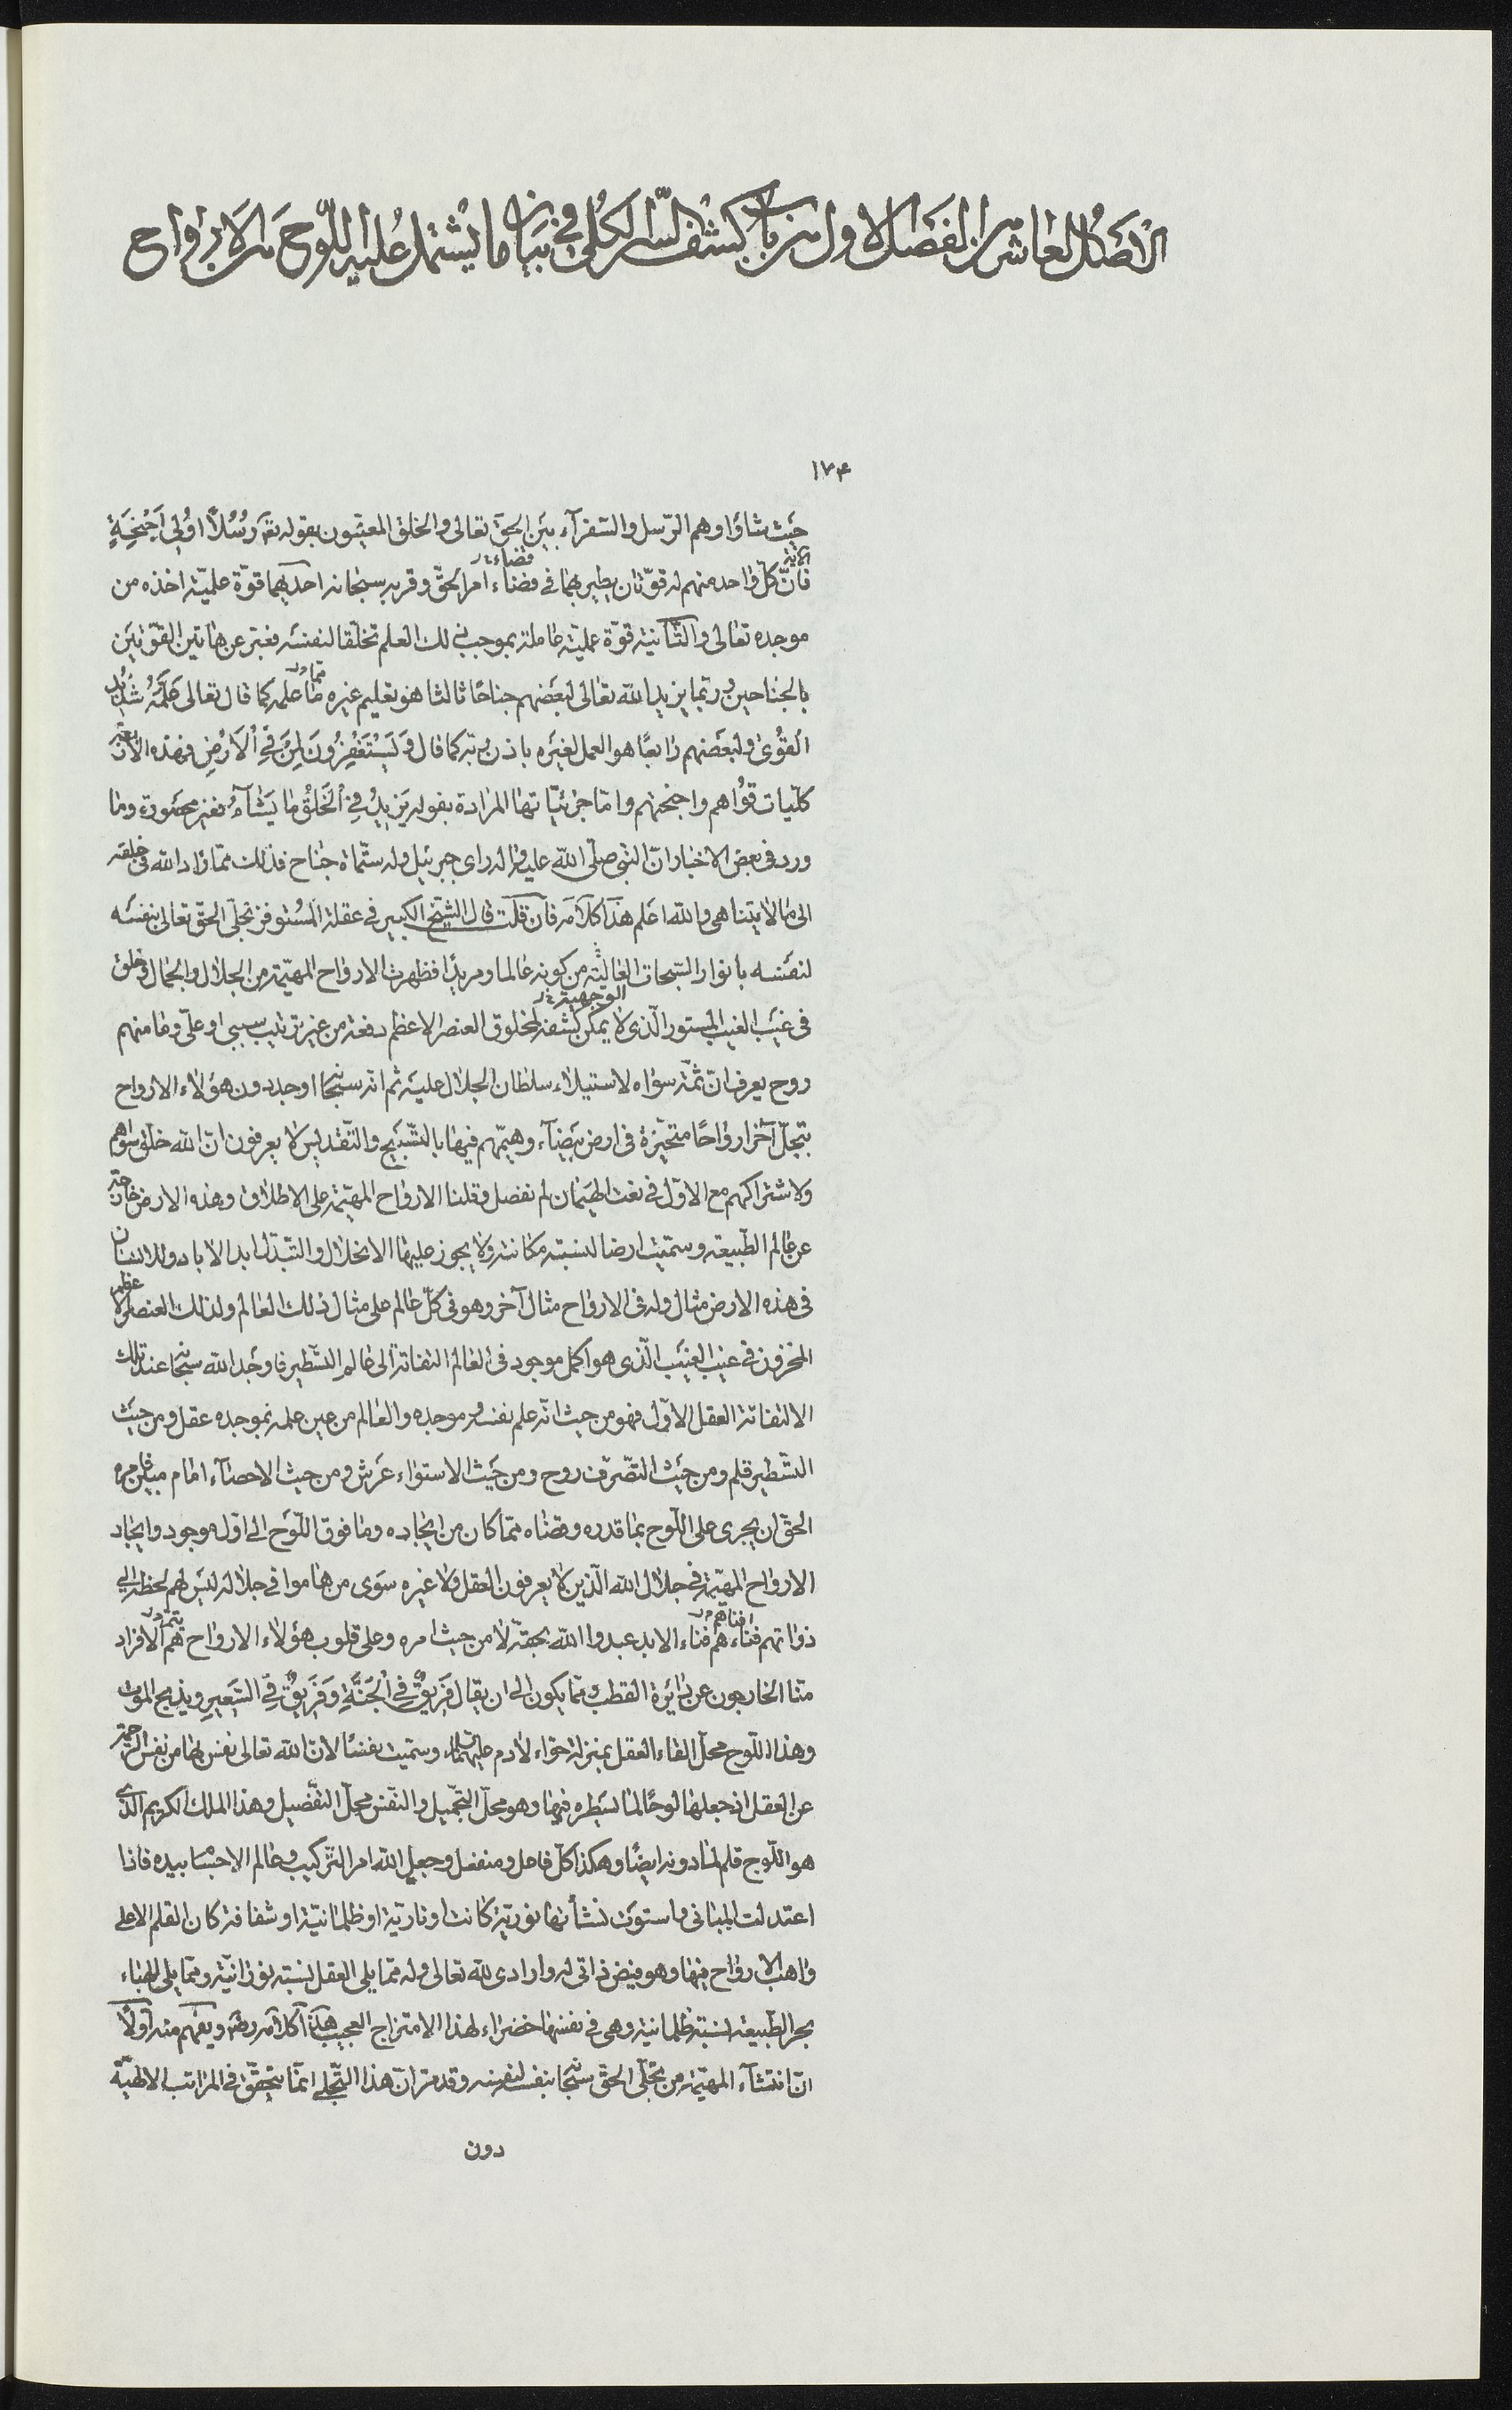 الأصل العاشر من الفصل الاول من باب كشف السر الكلى فى بيان ما يشتمل عليه اللّوح من الارواح
١٧۴
حيث شاؤا وهم الرّسل والسّفرآء بين الحقّ تعالى والخلق المعنيّون بقوله تعَ رُسُلاً اُولِى اَجْنِحَةٍ
الآية
فانّ كلّ واحد منهم له قوّتان يطير بهما فى فضاء امر الحقّ وقربه سبحانه احديهما قوّة علميّة اخذه من
فضاء
موجده تعالى والثّانية قوّة عمليّة عاملة بموجب ذلك العلم تخلّقا لنفسه فعبّر عن هاتين القوّتين
بالجناحين وربّما يزيد الله تعالى لبعضهم جناحًا ثالثا هو تعليم غيره ما علمه كما قال تعالى عَلَّمَهُ شَدِيدُ
ممّا
القُوىٰ ولبعضهم رابعًا هو العمل لغيره باذن ربّه كما قال وَيَسْتَغْفِرُونَ لِمَنْ فِى اْلاَرْضِ فهذه الأربعة
كلّيات قُواهم واجنحتهم وامّا جزئيّاتها المرادة بقوله يَزِيدُ فِى اْلخَلْقِ مٰا يَشٰآءُ فغير محصورة وما
ورد فى بعض الاخبار انّ النّبى صلّى الله عليه واله راى جبرئيل وله ستّمأة جناح فذلك ممّا زاد الله فى خلقه
الى ما لا يتناهى والله اعلم هذا كلامه فان قلت قال الشيخ الكبير فى عقلة المستوفز تجلّى الحقّ تعالى بنفسه
لنفسه بانوار السّبحات العالية من كونه عالما ومريدًا فظهرت الارواح المهيّمة من الجلال والجمال وخلق
الوجهية
فى غيب الغيب المستور الّذى لا يمكن كشفه لمخلوق العنصر الاعظم دفعة من غير ترتيب سببى او علّى وما منهم
روح يعرف انّ ثمّة سواه لاستيلاء سلطان الجلال عليه ثم انّه سبحانه اوجد دون هؤلاء الارواح
بتجلّ آخر ارواحًا متحيّزة فى ارض بيضآء وهيّمهم فيها بالتّسبيح والتّقديس لا يعرفون انّ الله خلق سواهم
ولاشتراكهم مع الاوّل فى نعت الهيمان لم نفصل وقلنا الارواح المهيّمة على الاطلاق وهذه الارض خارجة
عن عالم الطّبيعة وسمّيت ارضا لنسبة مكانية ولا يجوز عليها الانحلال والتبدّل ابد الاباد وللانسان
فى هذه الارض مثال وله فى الارواح مثال آخر وهو فى كلّ عالم على مثال ذلك العالم ولذلك العنصر الاعظم
المخزون فى غيب الغيب الّذى هو اكمل موجود فى العالم التفاتة الى عالم التسّطير فاوجد الله سبحانه عند تلك
الالتفاتة العقل الاوّل فهو من حيث انّه علم نفسه وموجده والعالم من عين علمه بموجده عقل ومن حيث
التسّطير قلم ومن حيث التصّرف روح ومن حيث الاستواء عرش ومن حيث الاحصآء امام مبين فامره
الحقّ ان يجرى على اللّوح بما قدره وقضاه ممّا كان من ايجاده وما فوق اللّوح الى اوّل موجود وايجاد
الارواح المهيّمة فى جلال الله الّذين لا يعرفون العقل ولا غيره سوى من هاموا فى جلاله ليس لهم لحظة الى
ذواتهم فناءهم فناء الابد عبدوا الله بحقّه لا من حيث امره وعلى قلوب هؤلاء الارواح هم الافراد
افناهم
منّا الخارجون عن دائرة القطب وممّا يكون الى ان يقال فَرِيقٌ فِى اْلجَنَّةِ وَفَرِيقٌ فِى السَّعِيرِ ويذبح الموت
وهذا اللّوح محلّ القاء العقل بمنزلة حوّاء لادم عليهما السلام وسمّيت نفسًا لانّ الله تعالى نفس بها من نفس الرحمة
عن العقل اذ جعلها لوحًا لما يسطره فيها وهو محلّ التجميل والنّفس محلّ التّفصيل وهذا الملك الكريم الّذى
هو اللّوح قلم لما دونه ايضًا وهكذا كلّ فاعل ومنفعل وجعل الله امر التّركيب وعالم الاجسام بيده فاذا
اعتدلت المبانى واستوت نشأتها نورية كانت او نارية او ظلمانيّة او شفافة كان القلم الاعلى
واهب الارواح فيها وهو فيض ذاتى له وارادى لله تعالى وله ممّا يلى العقل نسبته نورانيّة وممّا يلى الهباء
بحر الطّبيعة نسبة ظلمانيّة وهى فى نفسها خضراء لهذا الامتزاج العجيب هذا كلامه رضه ويفهم منه اوّلاً
انّ انتشآء المهيّمة من تجلّى الحقّ سبحانه بنفسه لنفسه وقد مرّ انّ هذا التّجلى انمّا يتحقّق فى المراتب الالهيّة
دون